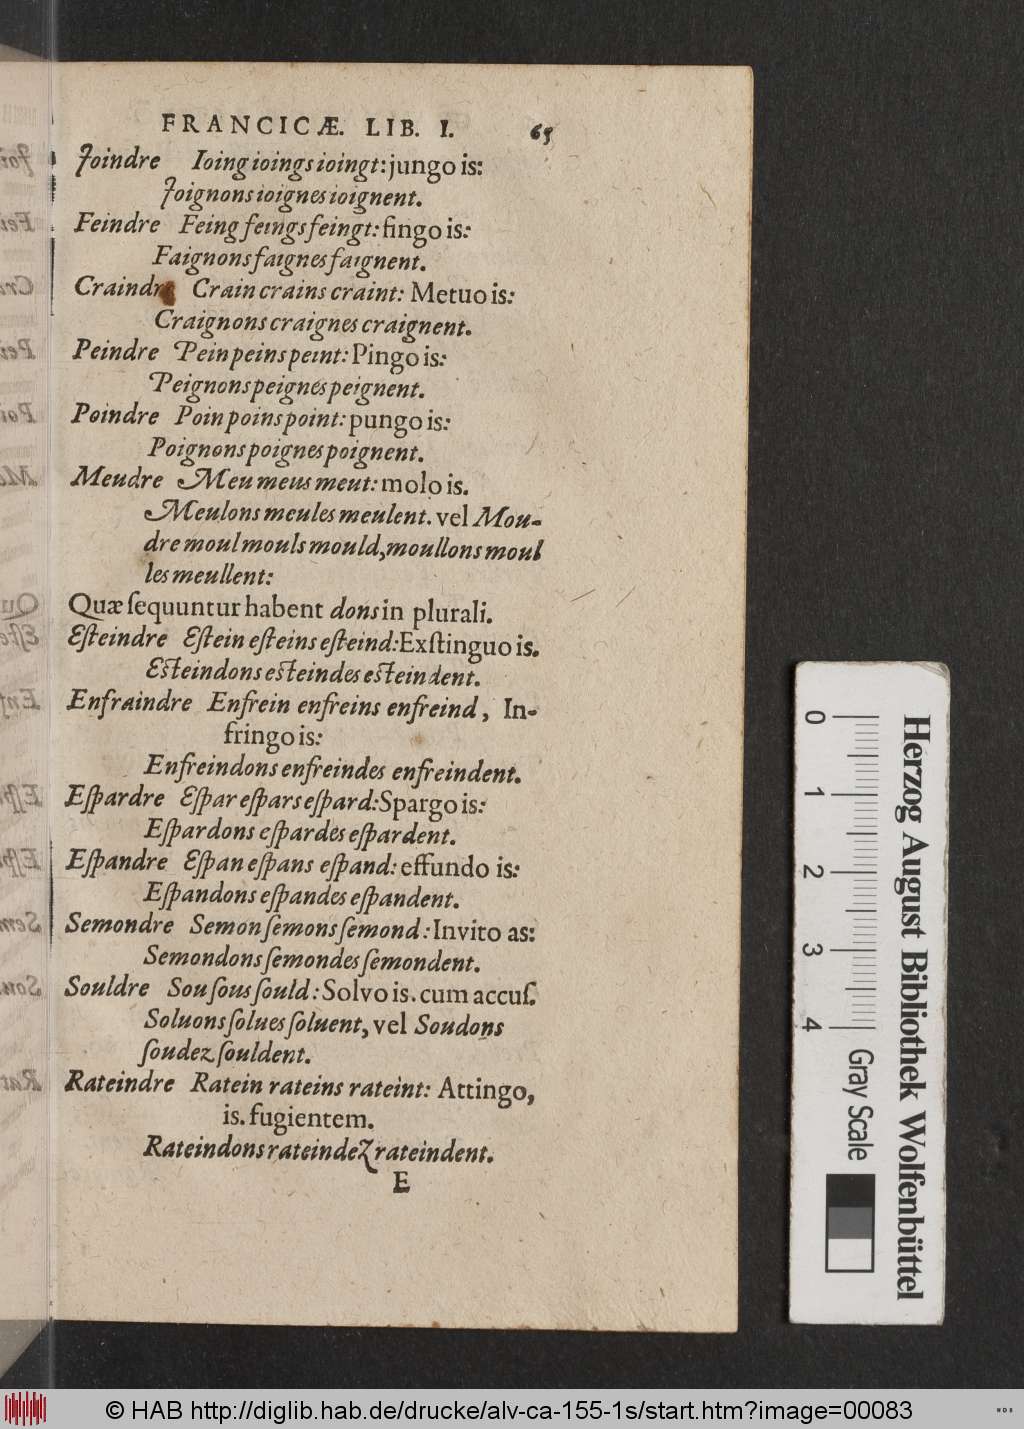 FRANCICÆ. LIB. I. 65
Joindre Ioing ioings ioingt: jungo is:
Joignons ioignes ioignent.
Feindre Feing feings feingt: fingo is:
Faignons faignes faignent.
Craindre Crain crains craint: Metuo is:
Craignons craignes craignent.
Peindre Pein peins peint: Pingo is:
Peignons peignes peignent.
Poindre Poin poins point: pungo is:
Poignons poignes poignent.
Meudre Meu meus meut: molo is.
Meulons meules meulent. vel Mou-
dre moul mouls mould, moullons moul
les meullent:
Quæ ſequuntur habent dons in plurali.
Eſteindre Eſtein eſteins eſteind: Exſtinguo is.
Eſteindons eſteindes eſteindent.
Enfraindre Enfrein enfreins enfreind, In-
fringo is:
Enfreindons enfreindes enfreindent.
Eſpardre Eſpar eſpars eſpard: Spargo is:
Eſpardons eſpardes eſpardent.
Eſpandre Eſpan eſpans eſpand: effundo is:
Eſpandons eſpandes eſpandent.
Semondre Semon ſemons ſemond: Invito as:
Semondons ſemondes ſemondent.
Souldre Sou ſous ſould: Solvo is. cum accuſ.
Soluons ſolues ſoluent, vel Soudons
ſoudez ſouldent.
Rateindre Ratein rateins rateint: Attingo,
is. fugientem.
Rateindons rateindez rateindent.
E
0 1 2 3 4 Gray Scale
Herzog August Bibliothek Wolfenbüttel
© HAB http://diglib.hab.de/drucke/alv-ca-155-1s/start.htm?image=00083